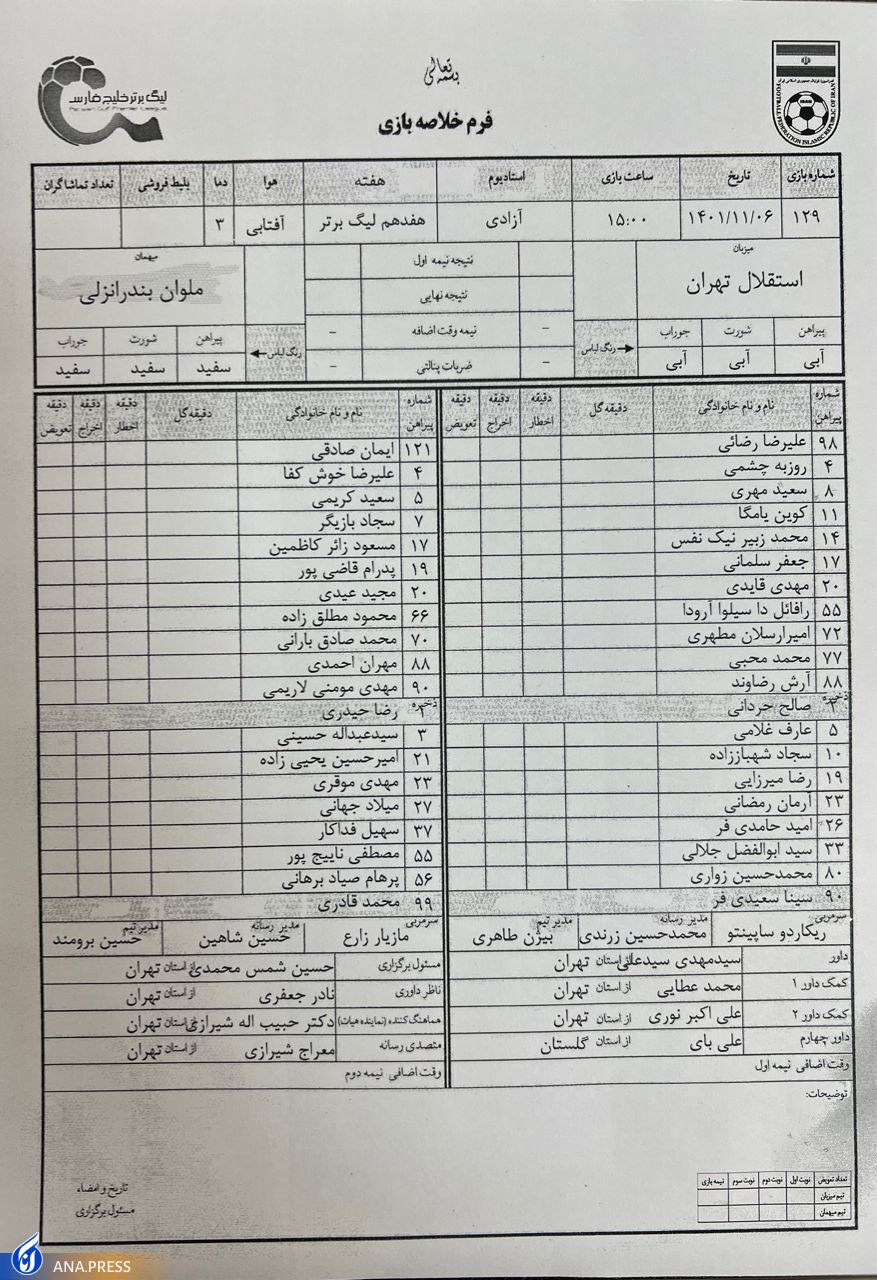 بسمه تعالی
فرم خلاصه بازی
لیگ برتر خلیج فارس
Persian Gulf Premier League
FOOTBALL FEDERATION ISLAMIC REPUBLIC OF IRAN
IRAN
شماره بازی تاریخ ساعت بازی استادیوم هفته هوا دما بلیط فروشی تعداد تماشاگران
۱۲۹ ۱۴۰۱/۱۱/۰۶ ۱۵:۰۰ آزادی هفدهم لیگ برتر آفتابی ۳
میزبان
استقلال تهران
پیراهن شورت جوراب
آبی آبی آبی
رنگ لباس
نتیجه نیمه اول
نتیجه نهایی
- نیمه وقت اضافه -
- ضربات پنالتی -
میهمان
ملوان بندرانزلی
رنگ لباس
پیراهن شورت جوراب
سفید سفید سفید
شماره پیراهن نام و نام خانوادگی دقیقه گل دقیقه اخطار دقیقه اخراج دقیقه تعویض
۹۸ علیرضا رضائی
۴ روزبه چشمی
۸ سعید مهری
۱۱ کوین یامگا
۱۴ محمد زبیر نیک نفس
۱۷ جعفر سلمانی
۲۰ مهدی قایدی
۵۵ رافائل دا سیلوا آرودا
۷۲ امیرارسلان مطهری
۷۷ محمد محبی
۸۸ آرش رضاوند
ذخیره
۲ صالح حردانی
۵ عارف غلامی
۱۰ سجاد شهباززاده
۱۹ رضا میرزایی
۲۳ آرمان رمضانی
۲۶ امید حامدی فر
۳۳ سید ابوالفضل جلالی
۸۰ محمدحسین زواری
۹۰ سینا سعیدی فر
سرمربی ریکاردو ساپینتو مدیر رسانه محمدحسین زرندی مدیر تیم بیژن طاهری
شماره پیراهن نام و نام خانوادگی دقیقه گل دقیقه اخطار دقیقه اخراج دقیقه تعویض
۱۲۱ ایمان صادقی
۴ علیرضا خوش کفا
۵ سعید کریمی
۷ سجاد بازیگر
۱۷ مسعود زائر کاظمین
۱۹ پدرام قاضی پور
۲۰ مجید عیدی
۶۶ محمود مطلق زاده
۷۰ محمد صادق بارانی
۸۸ مهران احمدی
۹۰ مهدی مومنی لاریمی
ذخیره
۱ رضا حیدری
۳ سیدعبداله حسینی
۲۱ امیرحسین یحیی زاده
۲۳ مهدی موقری
۲۷ میلاد جهانی
۳۷ سهیل فداکار
۵۵ مصطفی ناییج پور
۵۶ پرهام صیاد برهانی
۹۹ محمد قادری
سرمربی مازیار زارع مدیر رسانه حسین شاهین مدیر تیم حسین برومند
داور سیدمهدی سیدعلی از استان تهران
کمک داور ۱ محمد عطایی از استان تهران
کمک داور ۲ علی اکبر نوری از استان تهران
داور چهارم علی بای از استان گلستان
وقت اضافی نیمه اول
مسئول برگزاری حسین شمس محمدی از استان تهران
ناظر داوری نادر جعفری از استان تهران
هماهنگ کننده (نماینده هیات) دکتر حبیب اله شیرازی از استان تهران
متصدی رسانه معراج شیرازی از استان تهران
وقت اضافی نیمه دوم
توضیحات:
تعداد تعویض نوبت اول نوبت دوم نوبت سوم نیمه بازی
تیم میزبان
تیم میهمان
تاریخ و امضاء
مسئول برگزاری
ANA.PRESS